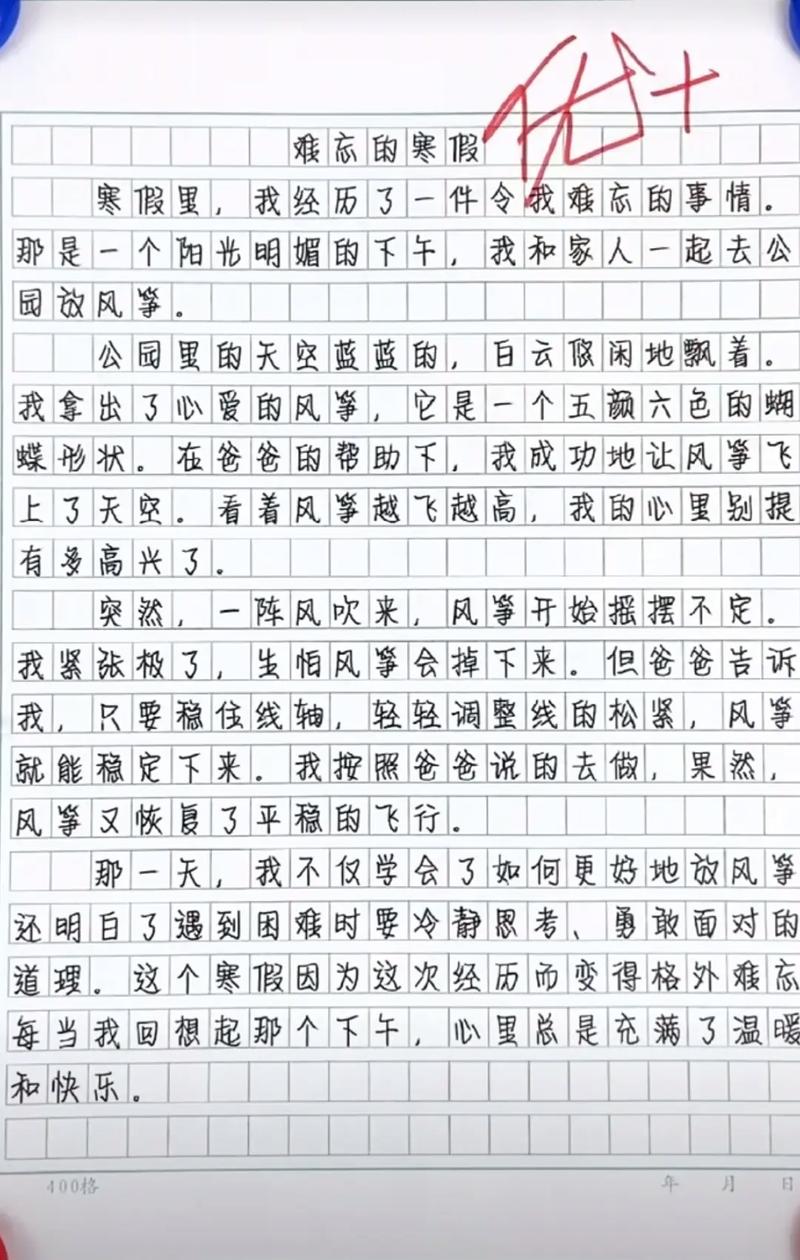 优+
难忘的寒假
寒假里，我经历了一件令我难忘的事情。
那是一个阳光明媚的下午，我和家人一起去公
园放风筝。
公园里的天空蓝蓝的，白云悠闲地飘着。
我拿出了心爱的风筝，它是一个五颜六色的蝴
蝶形状。在爸爸的帮助下，我成功地让风筝飞
上了天空。看着风筝越飞越高，我的心里别提
有多高兴了。
突然，一阵风吹来，风筝开始摇摆不定。
我紧张极了，生怕风筝会掉下来。但爸爸告诉
我，只要稳住线轴，轻轻调整线的松紧，风筝
就能稳定下来。我按照爸爸说的去做，果然，
风筝又恢复了平稳的飞行。
那一天，我不仅学会了如何更好地放风筝
还明白了遇到困难时要冷静思考、勇敢面对的
道理。这个寒假因为这次经历而变得格外难忘
每当我回想起那个下午，心里总是充满了温暖
和快乐。
400格 年 月 日